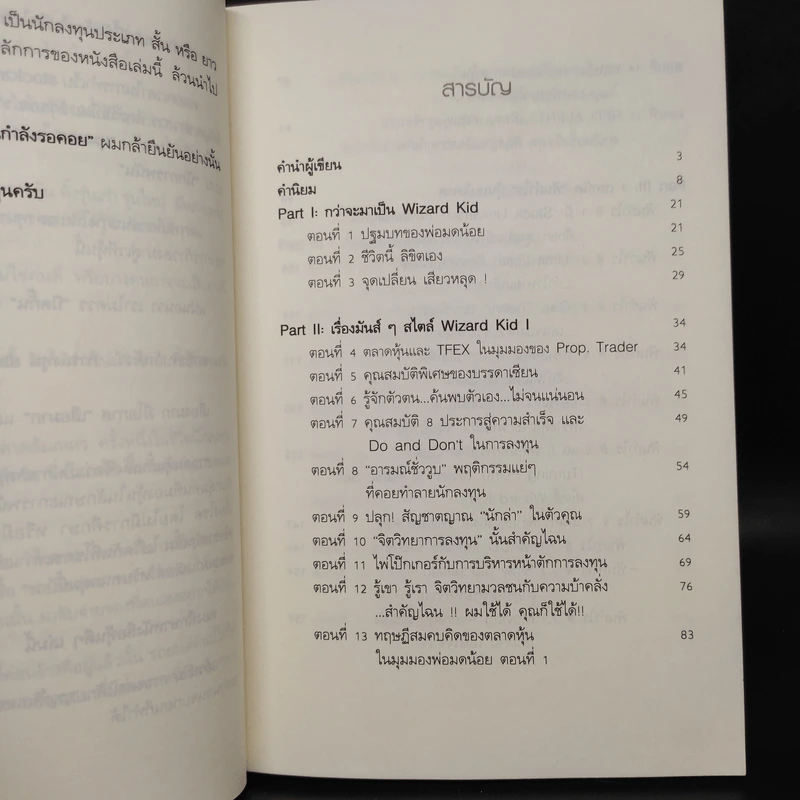 เป็นนักลงทุนประเภท สั้น หรือ ยาว
ลักการของหนังสือเล่มนี้ ล้วนนำไป
กำลังรอคอย" ผมกล้ายืนยันอย่างนั้น
นครับ
สารบัญ
คำนำผู้เขียน 3
คำนิยม 8
Part I: กว่าจะมาเป็น Wizard Kid 21
ตอนที่ 1 ปฐมบทของพ่อมดน้อย 21
ตอนที่ 2 ชีวิตนี้ ลิขิตเอง 25
ตอนที่ 3 จุดเปลี่ยน เสียวหลุด ! 29
Part II: เรื่องมันส์ ๆ สไตล์ Wizard Kid I 34
ตอนที่ 4 ตลาดหุ้นและ TFEX ในมุมมองของ Prop. Trader 34
ตอนที่ 5 คุณสมบัติพิเศษของบรรดาเซียน 41
ตอนที่ 6 รู้จักตัวตน...ค้นพบตัวเอง...ไม่จนแน่นอน 45
ตอนที่ 7 คุณสมบัติ 8 ประการสู่ความสำเร็จ และ 49
Do and Don't ในการลงทุน
ตอนที่ 8 "อารมณ์ชั่ววูบ" พฤติกรรมแย่ๆ 54
ที่คอยทำลายนักลงทุน
ตอนที่ 9 ปลุก! สัญชาตญาณ "นักล่า" ในตัวคุณ 59
ตอนที่ 10 "จิตวิทยาการลงทุน" นั้นสำคัญไฉน 64
ตอนที่ 11 ไพ่โป๊กเกอร์กับการบริหารหน้าตักการลงทุน 69
ตอนที่ 12 รู้เขา รู้เรา จิตวิทยามวลชนกับความบ้าคลั่ง 76
...สำคัญไฉน !! ผมใช้ได้ คุณก็ใช้ได้!!
ตอนที่ 13 ทฤษฎีสมคบคิดของตลาดหุ้น 83
ในมุมมองพ่อมดน้อย ตอนที่ 1